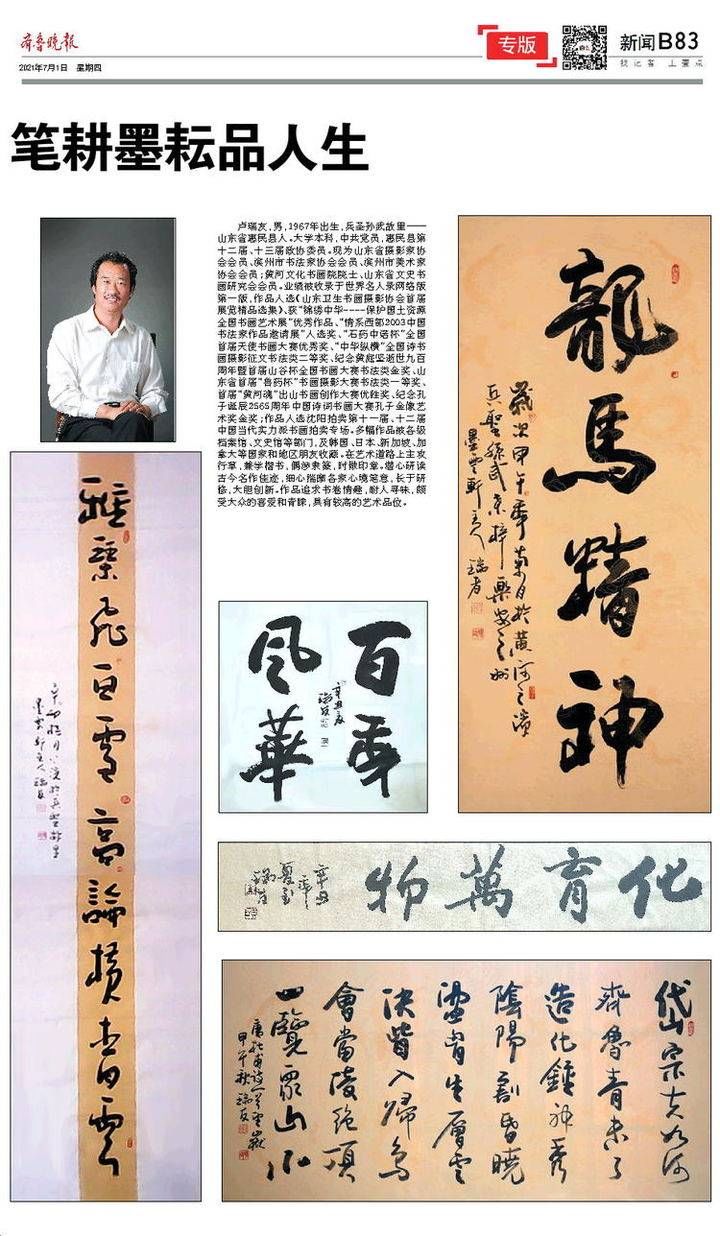 齐鲁晚报
2021年7月1日 星期四
专版
新闻B83
找记者 上壹点
笔耕墨耘品人生
卢瑞友，男，1967年出生，兵圣孙武故里——
山东省惠民县人。大学本科，中共党员，惠民县第
十二届、十三届政协委员。现为山东省摄影家协
会会员、滨州市书法家协会会员、滨州市美术家
协会会员；黄河文化书画院院士、山东省文史书
画研究会会员。业绩被收录于世界名人录网络版
第一版，作品入选《山东卫生书画摄影协会首届
展览精品选集》、获“锦绣中华----保护国土资源
全国书画艺术展”优秀作品、“情系西部2003中国
书法家作品邀请展”入选奖、“石药中诺杯”全国
首届天使书画大赛优秀奖、“中华纵横”全国诗书
画摄影征文书法类二等奖、纪念黄庭坚逝世九百
周年暨首届山谷杯全国书画大赛书法类金奖、山
东省首届“鲁药杯”书画摄影大赛书法类一等奖、
首届“黄河魂”出山书画创作大赛优胜奖、纪念孔
子诞辰2565周年中国诗词书画大赛孔子金像艺
术奖金奖；作品入选沈阳拍卖第十一届、十二届
中国当代实力派书画拍卖专场。多幅作品被各级
档案馆、文史馆等部门，及韩国、日本、新加坡、加
拿大等国家和地区朋友收藏。在艺术道路上主攻
行草，兼学楷书，偶涉隶篆，时做印章。潜心研读
古今名作佳迹，细心揣摩各家心境笔意，长于研
修，大胆创新。作品追求书卷情趣，耐人寻味，颇
受大众的喜爱和青睐，具有较高的艺术品位。
龍馬精神
歲次甲午季菊月於黄河之濱
兵聖孫武桑梓樂安之州
墨雲軒主人 瑞友
雅琴飛白雪高論横青雲
百年
風華
化育萬物
岱宗夫如何
齊魯青未了
造化鍾神秀
陰陽割昏曉
盪胷生層雲
决眥入歸鳥
會當凌絶頂
一覽衆山小
唐杜甫詩一首望嶽
甲午秋 瑞友